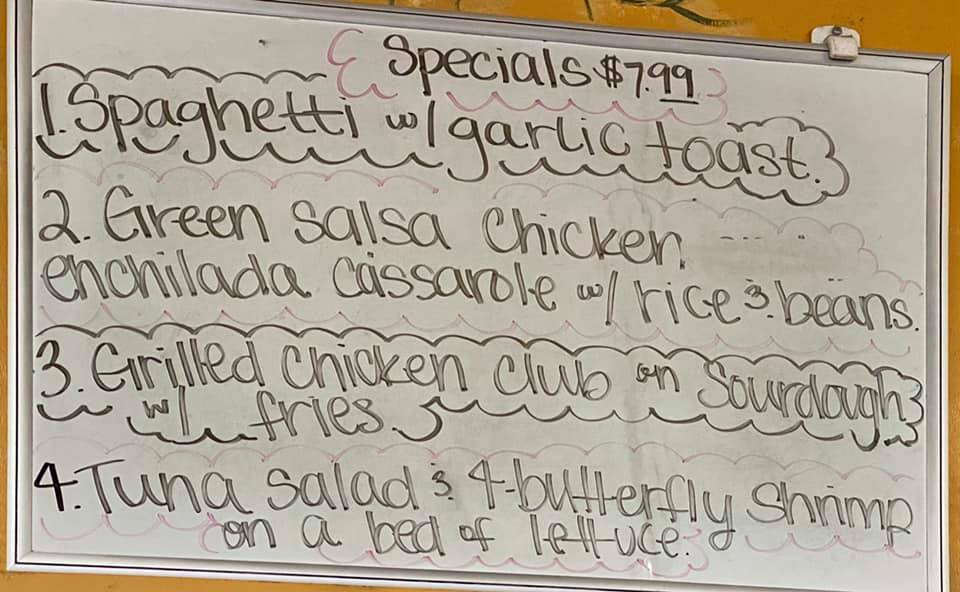 Specials $7.99
1. Spaghetti w/ garlic toast.
2. Green Salsa Chicken
enchilada cassarole w/ rice & beans.
3. Grilled Chicken Club on Sourdough
w/ fries.
4. Tuna Salad & 4-butterfly Shrimp
on a bed of lettuce.